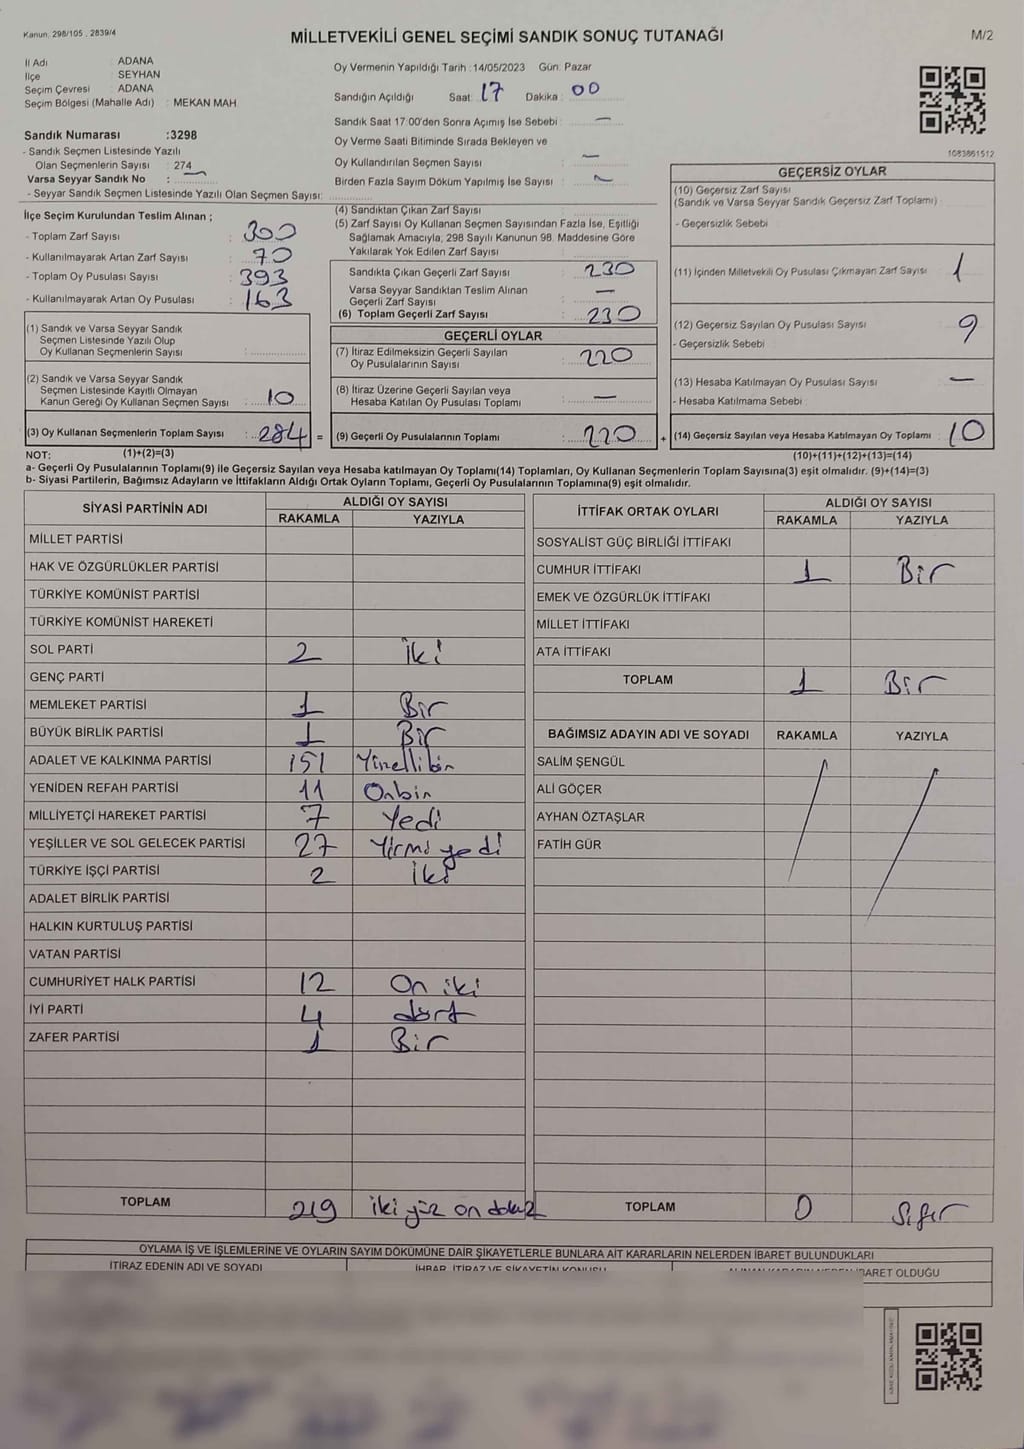 Kanun: 298/105 , 2839/4
MİLLETVEKİLİ GENEL SEÇİMİ SANDIK SONUÇ TUTANAĞI
M/2
İl Adı : ADANA
İlçe : SEYHAN
Seçim Çevresi : ADANA
Seçim Bölgesi (Mahalle Adı) : MEKAN MAH.
Oy Vermenin Yapıldığı Tarih :14/05/2023 Gün: Pazar
Sandığın Açıldığı Saat: 17 Dakika : 00
Sandık Saat 17:00'den Sonra Açımış İse Sebebi : —
Oy Verme Saati Bitiminde Sırada Bekleyen ve
Oy Kullandırılan Seçmen Sayısı : —
Birden Fazla Sayım Döküm Yapılmış İse Sayısı : ~
Sandık Numarası :3298
- Sandık Seçmen Listesinde Yazılı
Olan Seçmenlerin Sayısı : 274
Varsa Seyyar Sandık No :
- Seyyar Sandık Seçmen Listesinde Yazılı Olan Seçmen Sayısı:
1083861512
İlçe Seçim Kurulundan Teslim Alınan ;
- Toplam Zarf Sayısı : 300
- Kullanılmayarak Artan Zarf Sayısı : 70
- Toplam Oy Pusulası Sayısı : 393
- Kullanılmayarak Artan Oy Pusulası : 163
(1) Sandık ve Varsa Seyyar Sandık
Seçmen Listesinde Yazılı Olup
Oy Kullanan Seçmenlerin Sayısı :
(2) Sandık ve Varsa Seyyar Sandık
Seçmen Listesinde Kayıtlı Olmayan
Kanun Gereği Oy Kullanan Seçmen Sayısı : 10
(3) Oy Kullanan Seçmenlerin Toplam Sayısı : 284 =
(4) Sandıktan Çıkan Zarf Sayısı :
(5) Zarf Sayısı Oy Kullanan Seçmen Sayısından Fazla İse, Eşitliği
Sağlamak Amacıyla, 298 Sayılı Kanunun 98. Maddesine Göre
Yakılarak Yok Edilen Zarf Sayısı :
Sandıkta Çıkan Geçerli Zarf Sayısı : 230
Varsa Seyyar Sandıktan Teslim Alınan
Geçerli Zarf Sayısı : —
(6) Toplam Geçerli Zarf Sayısı : 230
GEÇERLİ OYLAR
(7) İtiraz Edilmeksizin Geçerli Sayılan
Oy Pusulalarının Sayısı : 220
(8) İtiraz Üzerine Geçerli Sayılan veya
Hesaba Katılan Oy Pusulası Toplamı : —
(9) Geçerli Oy Pusulalarının Toplamı : 220 +
GEÇERSİZ OYLAR
(10) Geçersiz Zarf Sayısı
(Sandık ve Varsa Seyyar Sandık Geçersiz Zarf Toplamı)
- Geçersizlik Sebebi :
(11) İçinden Milletvekili Oy Pusulası Çıkmayan Zarf Sayısı : 1
(12) Geçersiz Sayılan Oy Pusulası Sayısı : 9
- Geçersizlik Sebebi :
(13) Hesaba Katılmayan Oy Pusulası Sayısı : —
- Hesaba Katılmama Sebebi :
(14) Geçersiz Sayılan veya Hesaba Katılmayan Oy Toplamı : 10
NOT: (1)+(2)=(3)
(10)+(11)+(12)+(13)=(14)
a- Geçerli Oy Pusulalarının Toplamı(9) ile Geçersiz Sayılan veya Hesaba katılmayan Oy Toplamı(14) Toplamları, Oy Kullanan Seçmenlerin Toplam Sayısına(3) eşit olmalıdır. (9)+(14)=(3)
b- Siyasi Partilerin, Bağımsız Adayların ve İttifakların Aldığı Ortak Oyların Toplamı, Geçerli Oy Pusulalarının Toplamına(9) eşit olmalıdır.
SİYASİ PARTİNİN ADI
ALDIĞI OY SAYISI
RAKAMLA YAZIYLA
MİLLET PARTİSİ
HAK VE ÖZGÜRLÜKLER PARTİSİ
TÜRKİYE KOMÜNİST PARTİSİ
TÜRKİYE KOMÜNİST HAREKETİ
SOL PARTİ 2 iki
GENÇ PARTİ
MEMLEKET PARTİSİ 1 Bir
BÜYÜK BİRLİK PARTİSİ 1 Bir
ADALET VE KALKINMA PARTİSİ 151 Yüzellibir
YENİDEN REFAH PARTİSİ 11 Onbir
MİLLİYETÇİ HAREKET PARTİSİ 7 Yedi
YEŞİLLER VE SOL GELECEK PARTİSİ 27 Yirmi yedi
TÜRKİYE İŞÇİ PARTİSİ 2 iki
ADALET BİRLİK PARTİSİ
HALKIN KURTULUŞ PARTİSİ
VATAN PARTİSİ
CUMHURİYET HALK PARTİSİ 12 On iki
İYİ PARTİ 4 dört
ZAFER PARTİSİ 1 Bir
TOPLAM 219 iki yüz on dokuz
İTTİFAK ORTAK OYLARI
ALDIĞI OY SAYISI
RAKAMLA YAZIYLA
SOSYALİST GÜÇ BİRLİĞİ İTTİFAKI
CUMHUR İTTİFAKI 1 Bir
EMEK VE ÖZGÜRLÜK İTTİFAKI
MİLLET İTTİFAKI
ATA İTTİFAKI
TOPLAM 1 Bir
BAĞIMSIZ ADAYIN ADI VE SOYADI RAKAMLA YAZIYLA
SALİM ŞENGÜL
ALİ GÖÇER
AYHAN ÖZTAŞLAR
FATİH GÜR
TOPLAM 0 Sıfır
OYLAMA İŞ VE İŞLEMLERİNE VE OYLARIN SAYIM DÖKÜMÜNE DAİR ŞİKAYETLERLE BUNLARA AİT KARARLARIN NELERDEN İBARET BULUNDUKLARI
İTİRAZ EDENİN ADI VE SOYADI
İHBAR, İTİRAZ VE ŞİKAYETİN KONUSU
İBARET OLDUĞU